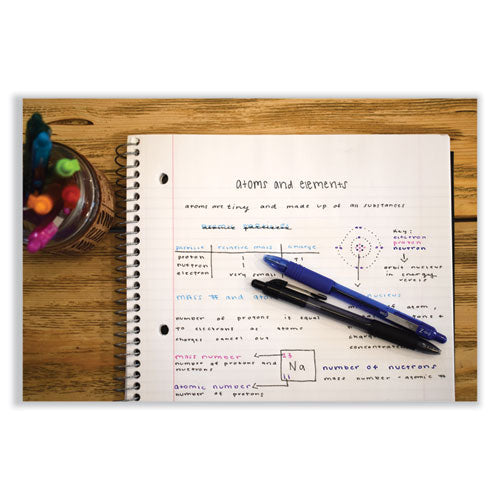 atoms and elements
atoms are tiny and made up of all substances
atomic particles
particle relative mass charge
proton 1 +1
neutron 1
electron very small
Key:
electron
proton
neutron
orbit nucleus
in energy
levels
mass # and nucleus
number of protons is equal
to electrons so atomic
charges cancel out
mass number
number of protons and
neutrons
atomic number
number of protons
23
Na
11
number of neutrons
mass number - atomic #